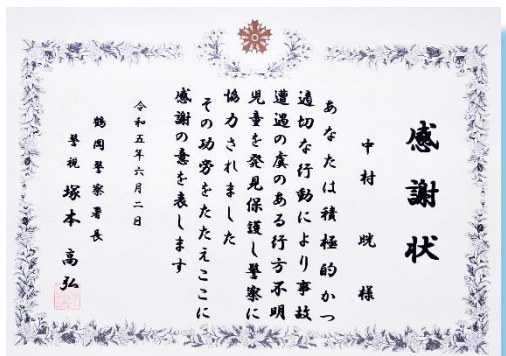 感謝状
中村 晄 様
あなたは積極的かつ
適切な行動により事故
遭遇の虞のある行方不明
児童を発見保護し警察に
協力されました
その功労をたたえここに
感謝の意を表します
令和五年六月二日
鶴岡警察署長
警視 塚本 高弘